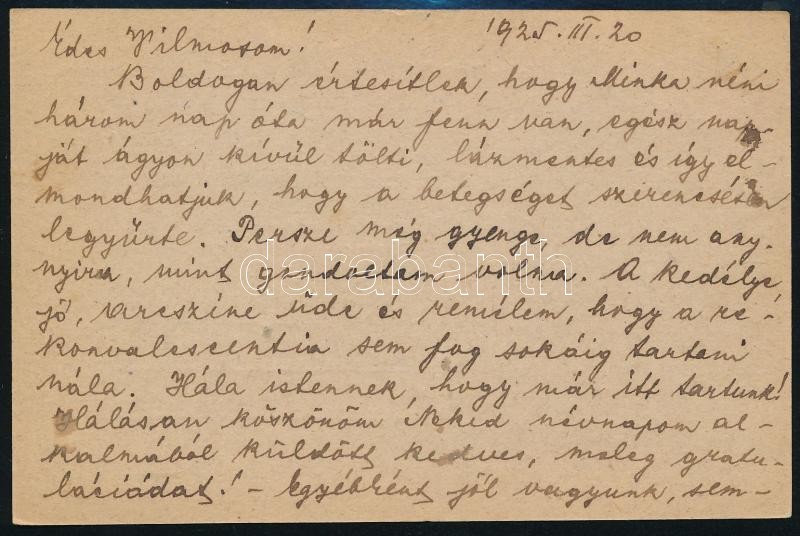 Édes Vilmosom! 1925. III. 20
Boldogan értesítlek, hogy Minka néni
három nap óta már fenn van, egész nap-
ját ágyon kívül tölti, lázmentes és így el-
mondhatjuk, hogy a betegséget szerencsésen
legyűrte. Persze még gyenge, de nem any-
nyira, mint gondoltam volna. A kedélye
jó, arcszíne üde és remélem, hogy a re-
konvalescentia sem fog sokáig tartani
nála. Hála istennek, hogy már itt tartunk!
Hálásan köszönöm Neked névnapom al-
kalmából küldött kedves, meleg gratu-
lációádat! – Egyébként jól vagyunk, sem-
darabanth